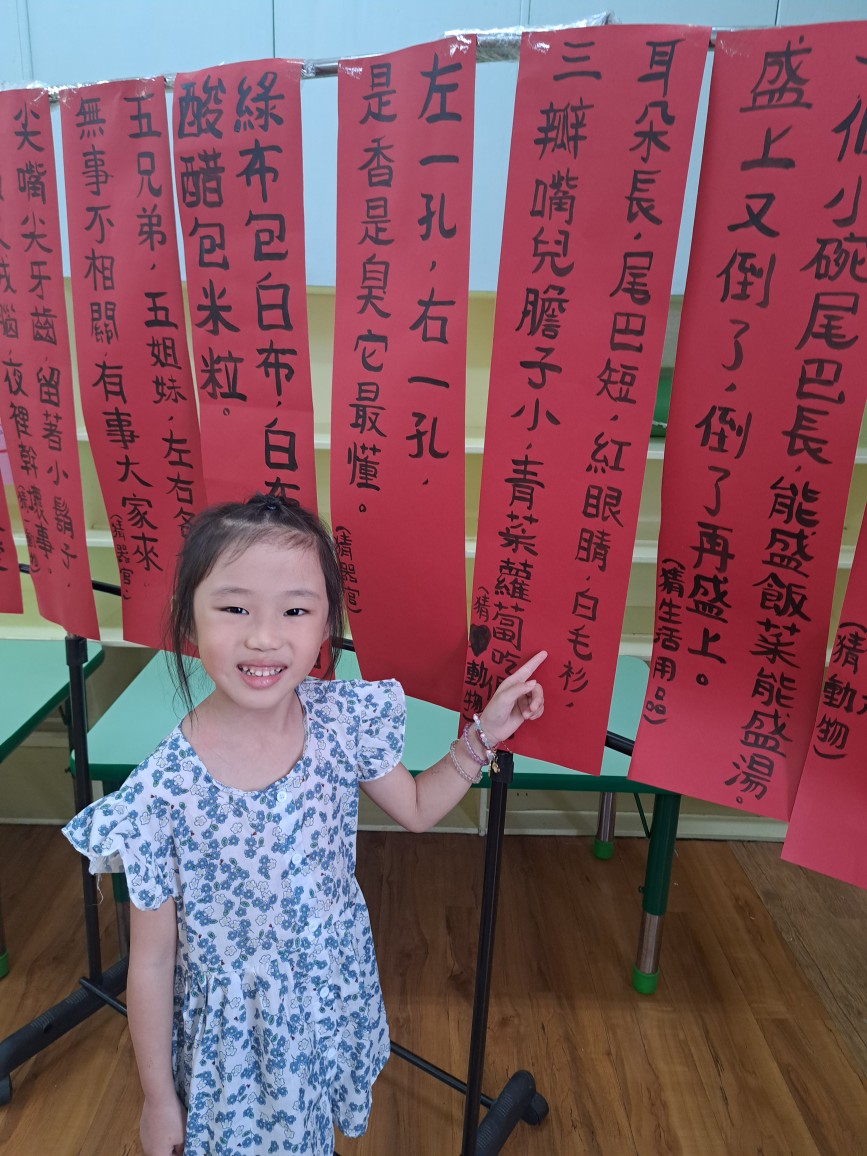 (猜動物)
小碗尾巴長，能盛飯菜能盛湯。
盛上又倒了，倒了再盛上。
(猜生活用品)
耳朵長，尾巴短，紅眼睛，白毛杉，
三瓣嘴兒膽子小，青菜蘿蔔吃
(猜動物)
左一孔，右一孔，
是香是臭它最懂。
(猜器官)
綠布包白布，白布
酸醋包米粒。
五兄弟，五姐妹，左右
無事不相關，有事大家來
(猜器官)
尖嘴尖牙齒，留著小鬍子，
腦，夜裡幹壞事，